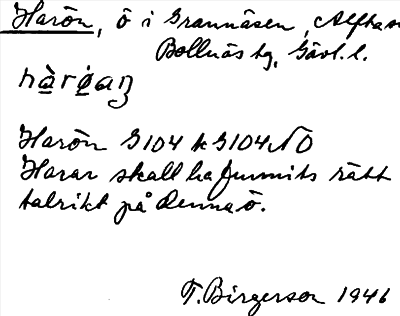 Harön, ö i Grannäsen, Alfta sn
Bollnäs tg, Gävl. l.
hàrǿaŋ
Harön G104 k G104 NO
Harar skall ha funnits rätt
talrikt på denna ö.
T. Birgerson 1946